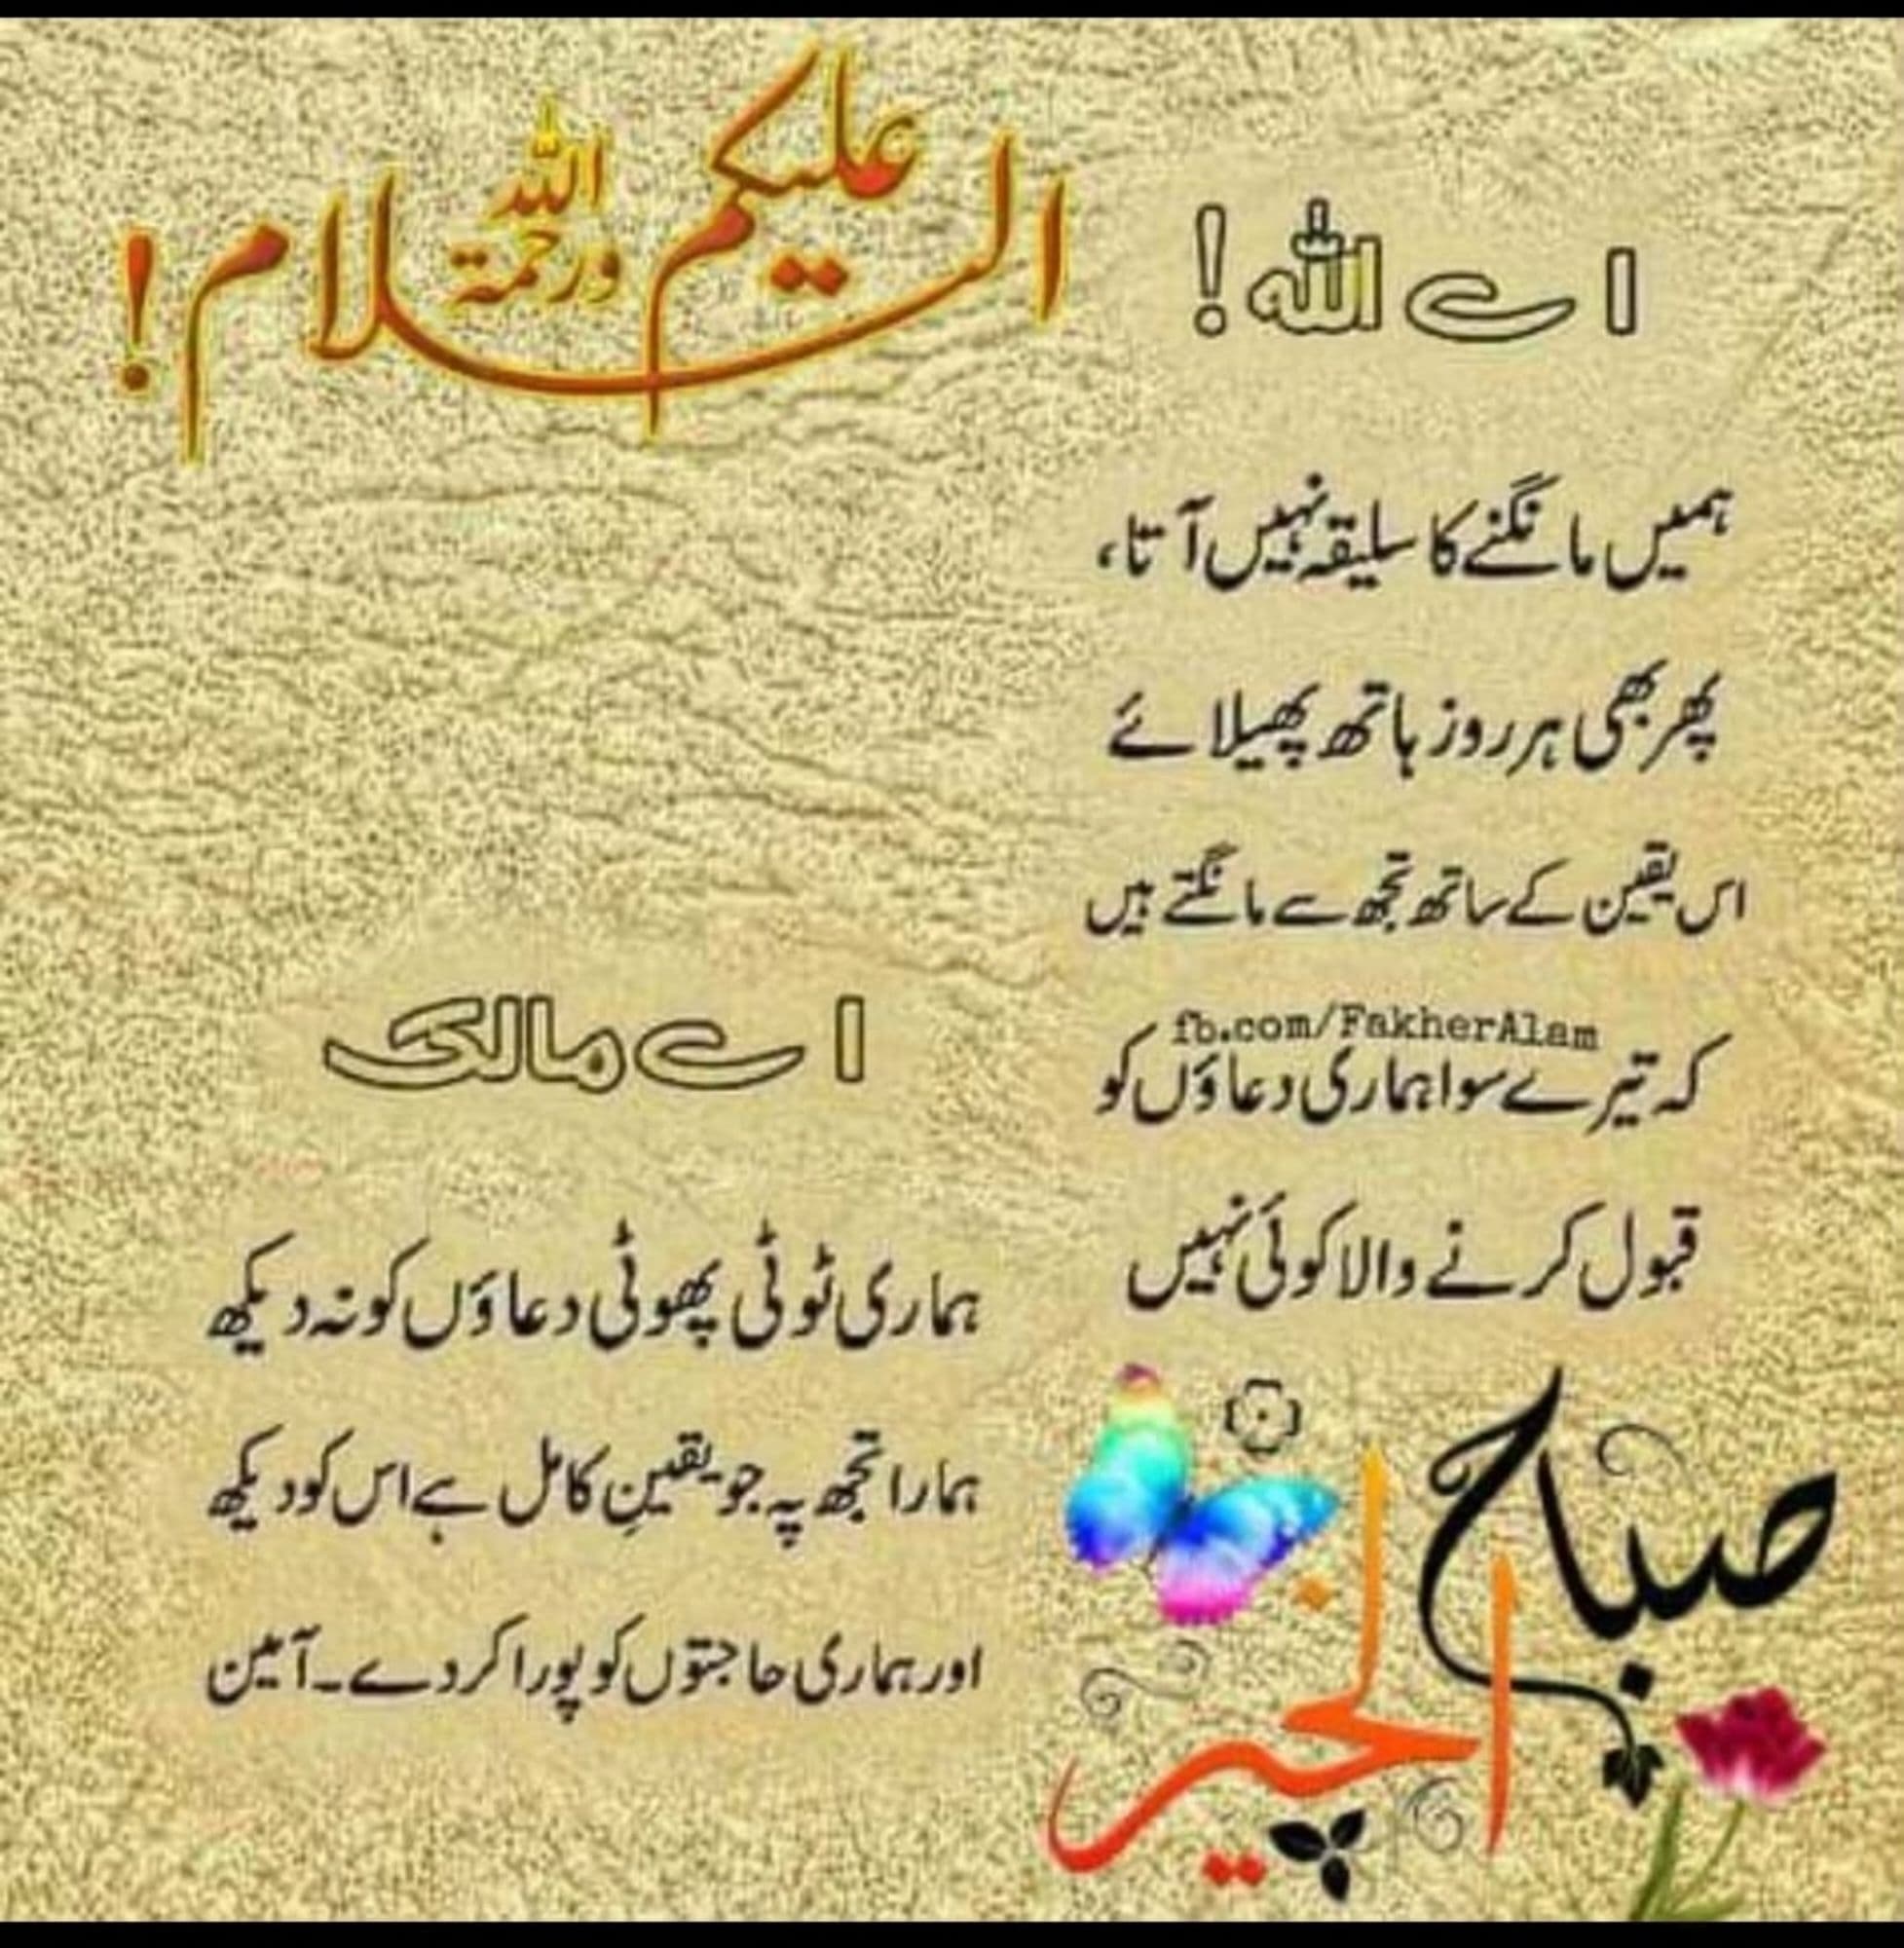 السلام علیکم ورحمۃ اللہ!
اے اللہ!
ہمیں مانگنے کا سلیقہ نہیں آتا،
پھر بھی ہر روز ہاتھ پھیلائے
اس یقین کے ساتھ تجھ سے مانگتے ہیں
fb.com/FakherAlam
کہ تیرے سوا ہماری دعاؤں کو
قبول کرنے والا کوئی نہیں
اے مالک
ہماری ٹوٹی پھوٹی دعاؤں کو نہ دیکھ
ہمارا تجھ پہ جو یقینِ کامل ہے اس کو دیکھ
اور ہماری حاجتوں کو پورا کر دے۔ آمین
صباح
الخیر